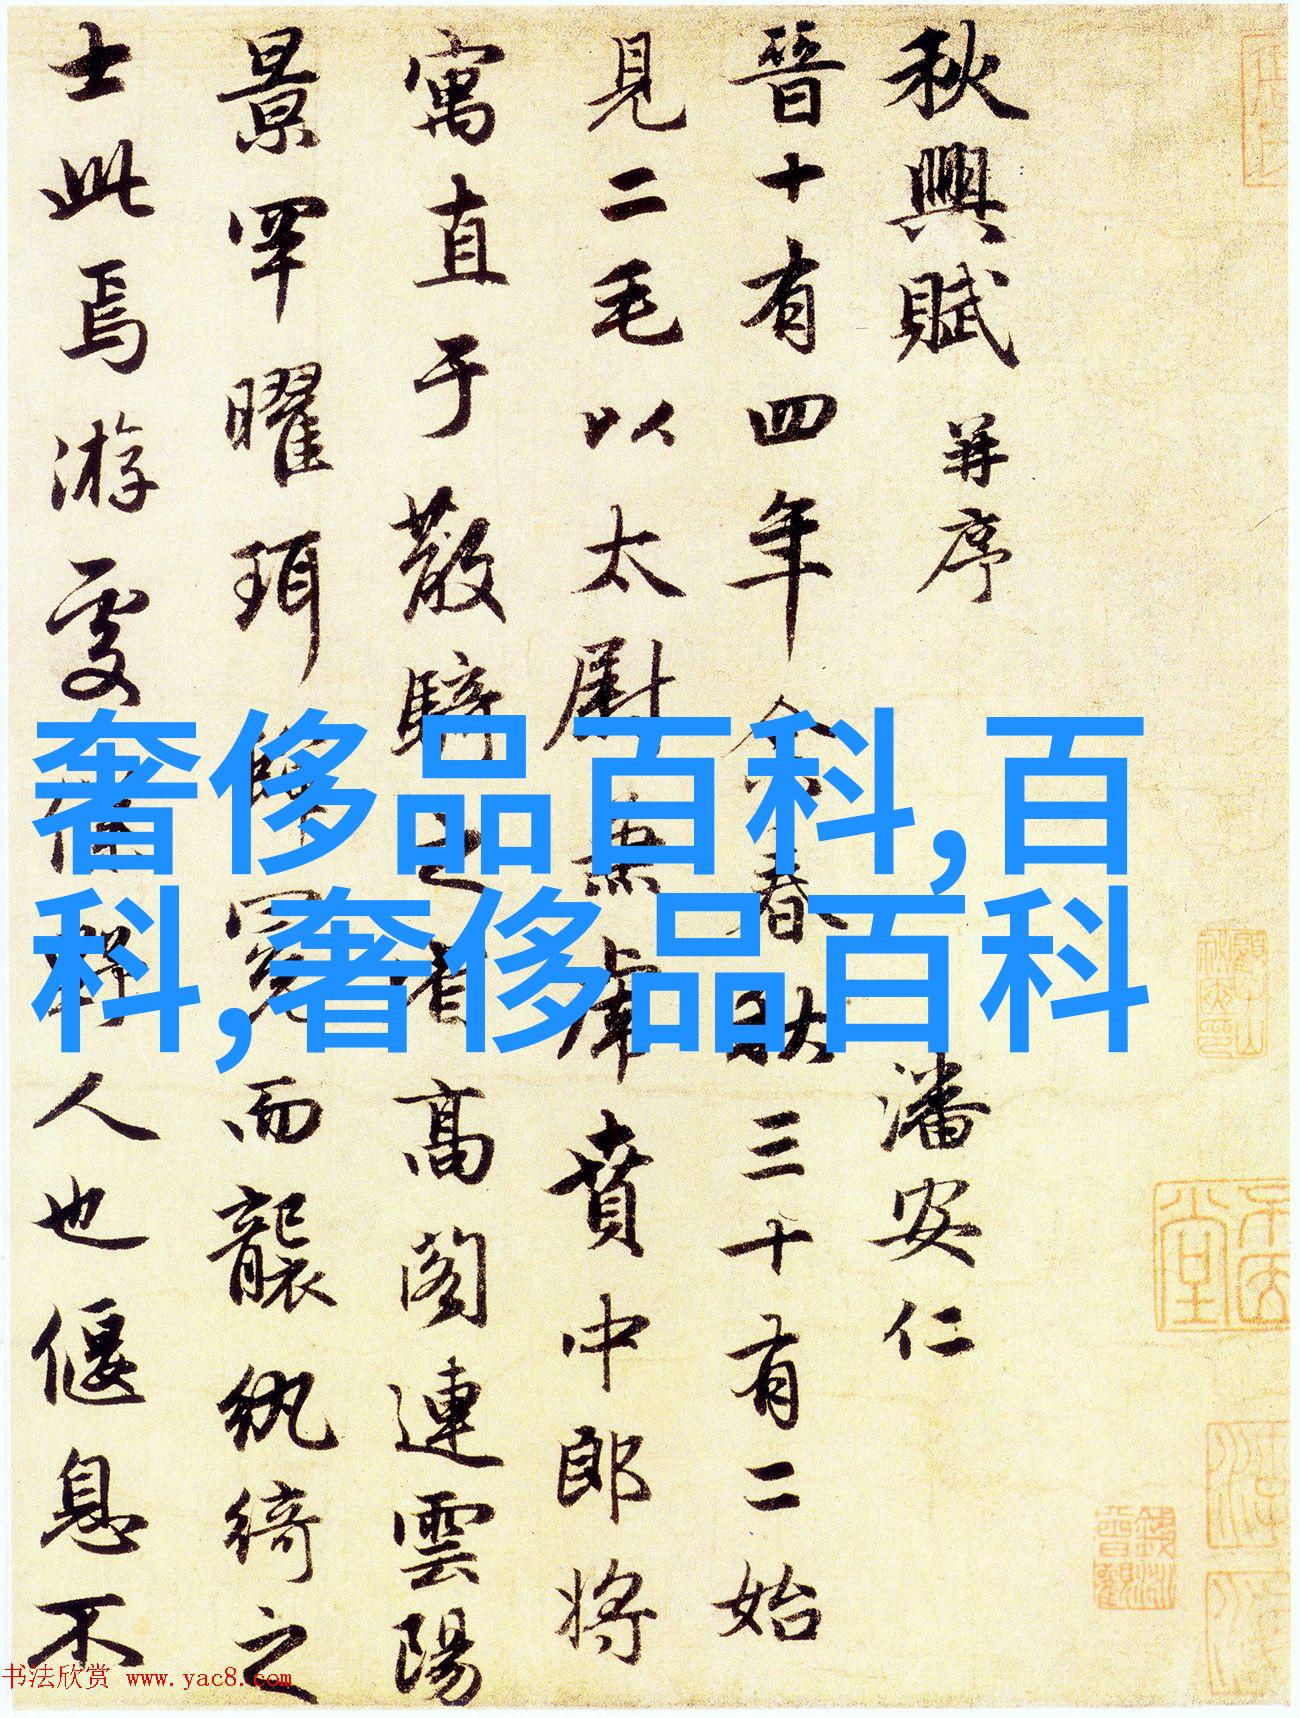 秋興賦 并序 潘安仁
晉十有四年余春秋三十有二始
見二毛以太尉兼虎賁中郎将
寓直于散騎之省高閣連雲陽
景罕曜珥蟬冕而襲紈綺之
士此焉游處僕野人也偃息不
奢侈品百科,百
科,奢侈品百科
书法欣赏 www.yac8.com